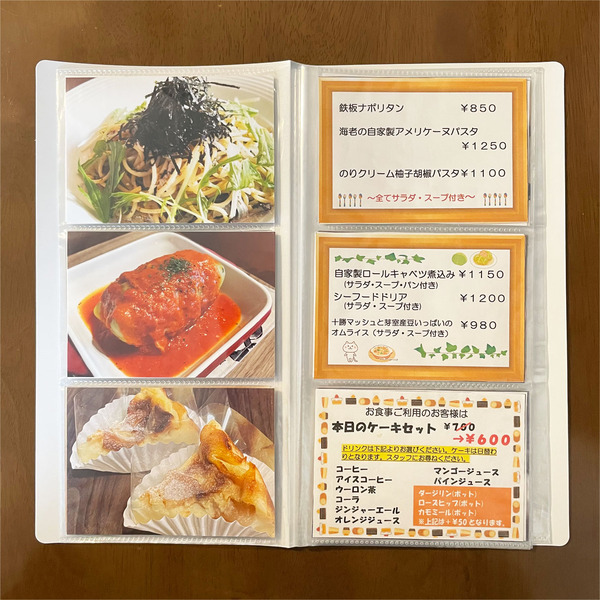 鉄板ナポリタン ¥850
海老の自家製アメリケーヌパスタ
¥1250
のりクリーム柚子胡椒パスタ ¥1100
～全てサラダ・スープ付き～
自家製ロールキャベツ煮込み ¥1150
(サラダ・スープ・パン付き)
シーフードドリア ¥1200
(サラダ・スープ付き)
十勝マッシュと芽室産豆いっぱいの ¥980
オムライス (サラダ・スープ付き)
お食事ご利用のお客様は
本日のケーキセット ¥700
→¥600
ドリンクは下記よりお選びください。ケーキは日替わ
りとなります、スタッフにお尋ねください。
コーヒー
アイスコーヒー
ウーロン茶
コーラ
ジンジャーエール
オレンジジュース
マンゴージュース
パインジュース
ダージリン(ポット)
ローズヒップ(ポット)
カモミール(ポット)
※上記は+¥50となります。